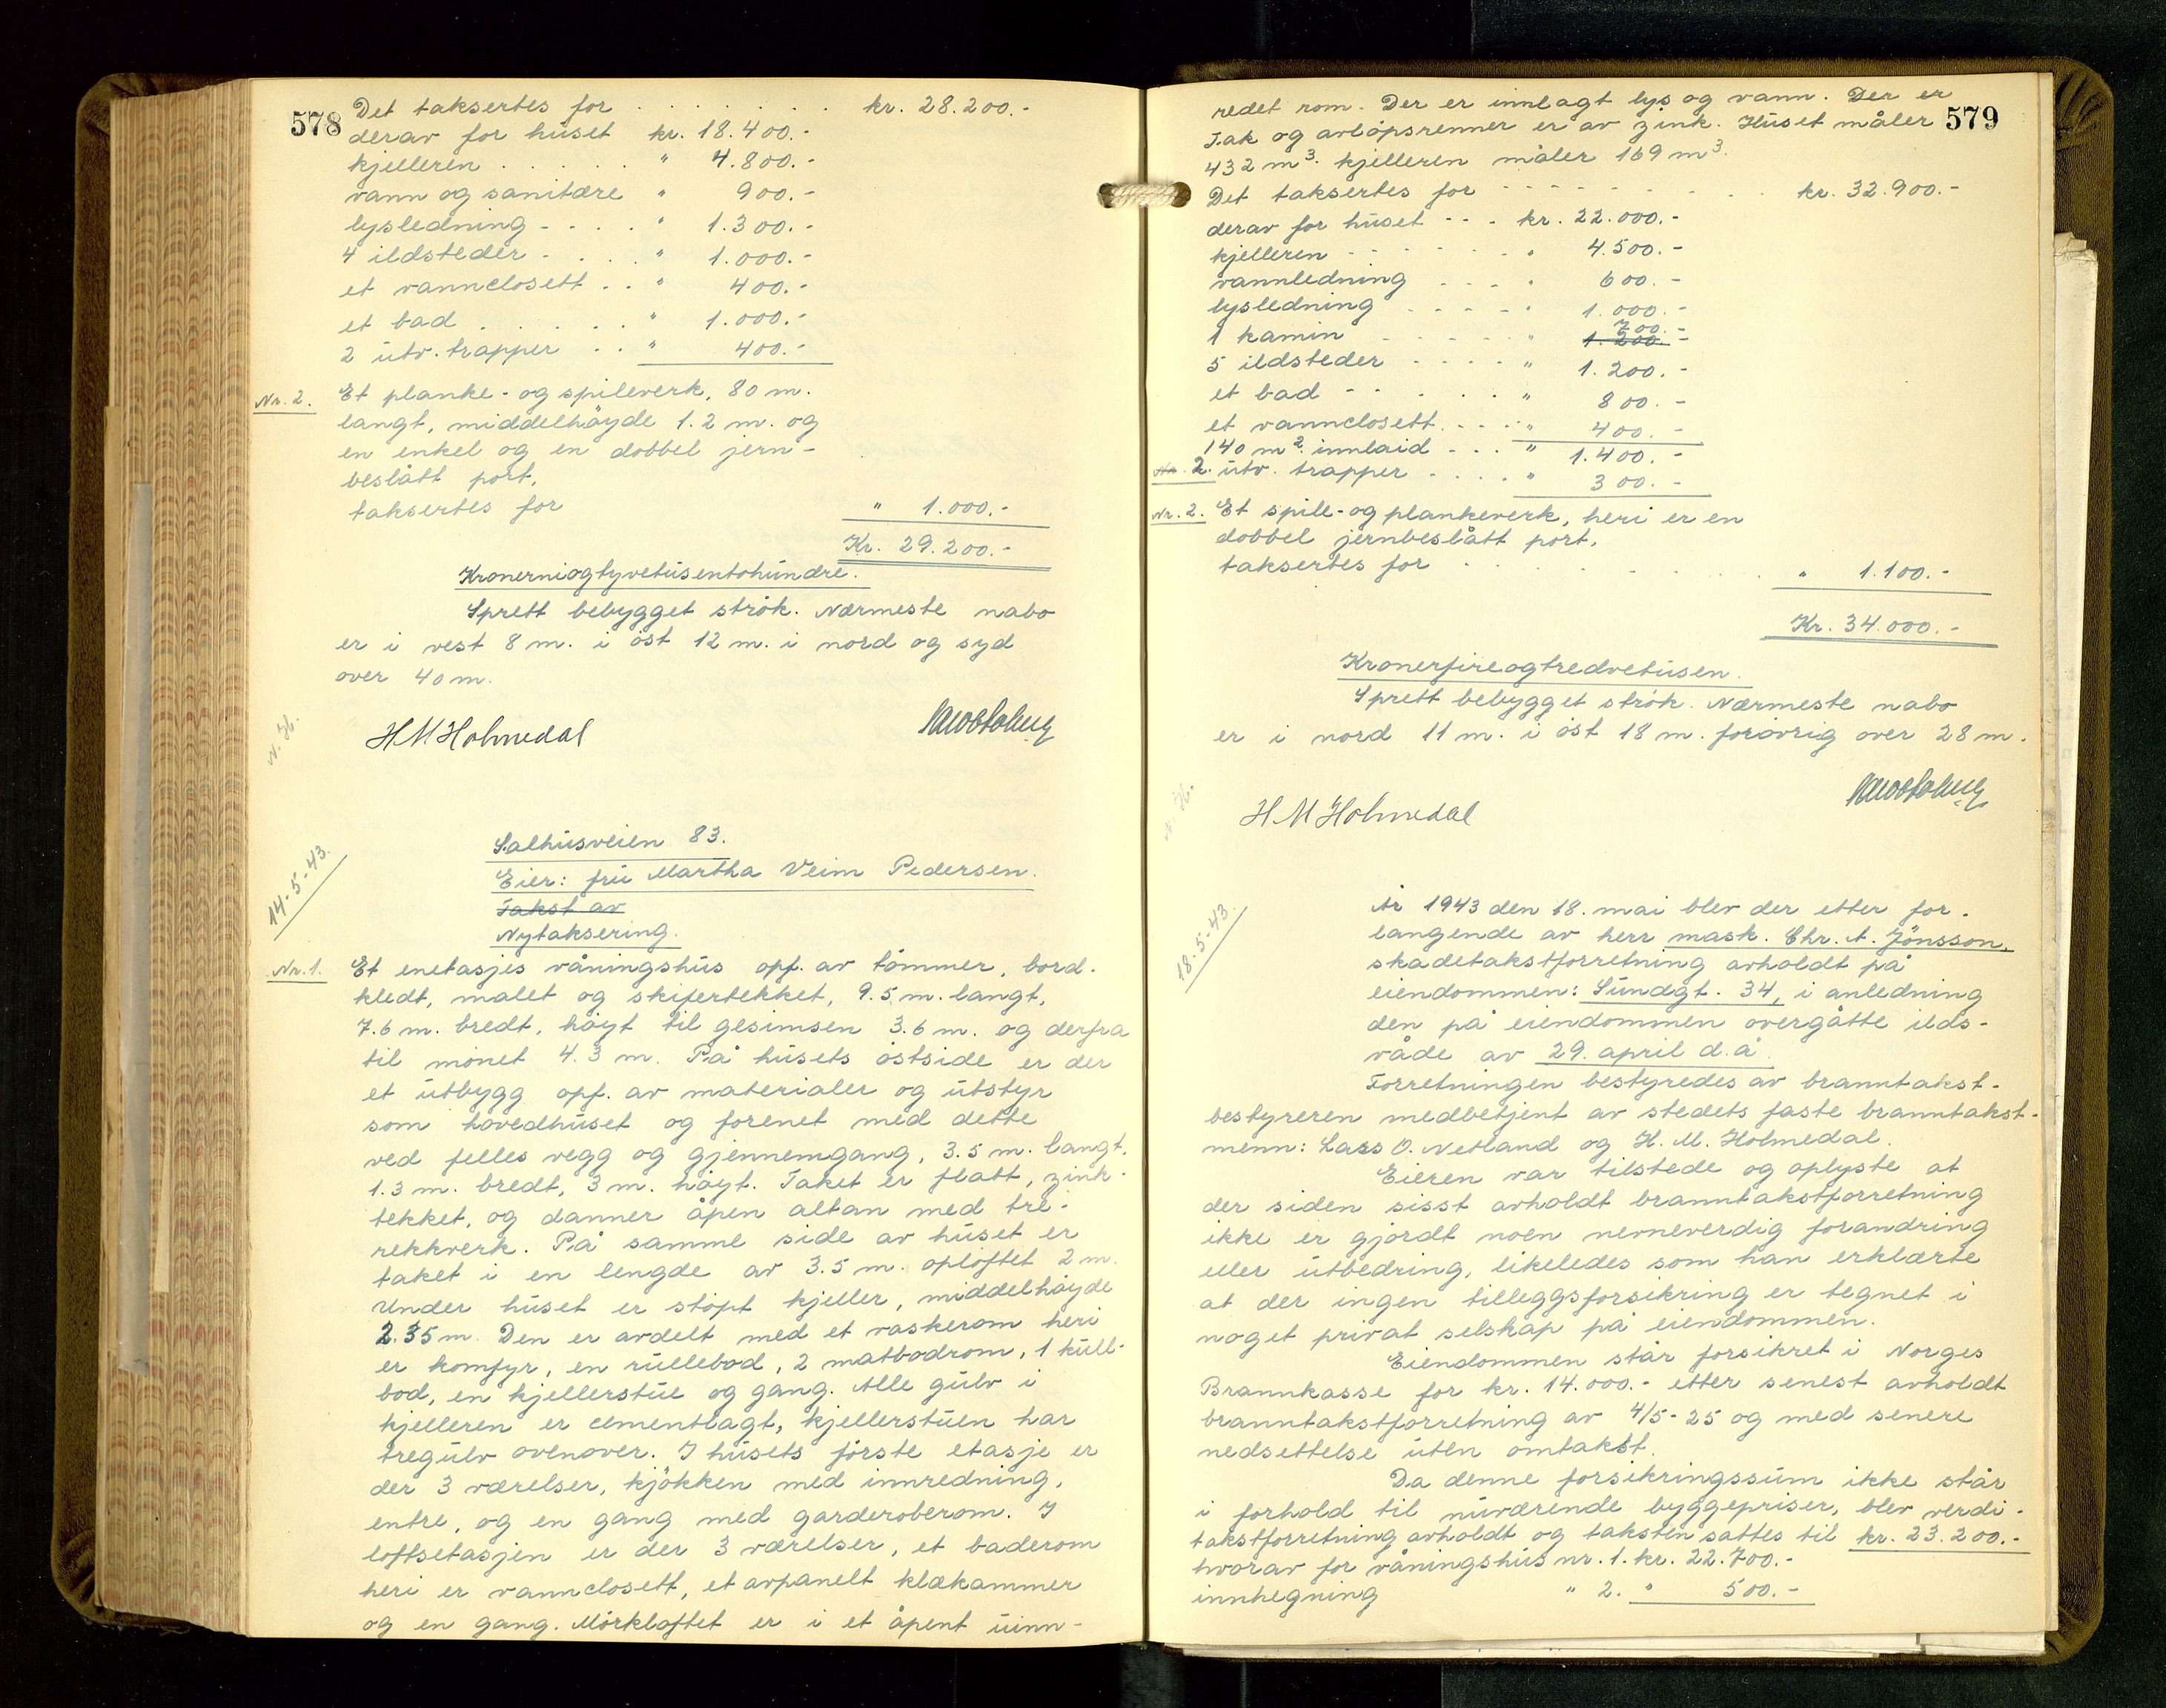 578
Det taksertes for . . . . . . . kr. 28.200.-
derav for huset kr. 18.400.-
kjelleren . . . . . " 4.800.-
vann og sanitære " 900.-
lysledning - . . . " 1.300.-
4 ildsteder - . . . " 1.000.-
et vannclosett . . " 400.-
et bad . . . . . " 1.000.-
2 utv. trapper . . " 400.-
Nr. 2. Et planke- og spileverk, 80 m.
langt, middelhøyde 1.2 m. og
en enkel og en dobbel jern-
beslått port,
taksertes for " 1.000.-
Kr. 29.200.-
Kronerniogtyvetusentohundre.
Sprett bebygget strøk. Nærmeste nabo
er i vest 8 m. i øst 12 m. i nord og syd
over 40 m.
N. H.
H M Holmedal
14-5-43.
Salhusveien 83.
Eier: fru Martha Veim Pedersen.
Takst av
Nytaksering.
Nr. 1. Et enetasjes våningshus opf. av tømmer, bord-
kledt, malet og skifertekket, 9.5 m. langt,
7.6 m. bredt, høyt til gesimsen 3.6 m. og derfra
til mønet 4.3 m. På husets østside er der
et utbygg opf. av materialer og utstyr
som hovedhuset og forenet med dette
ved felles vegg og gjennemgang, 3.5 m. langt,
1.3 m. bredt, 3 m. høyt. Taket er flatt, zink-
tekket, og danner åpen altan med tre-
rekkverk. På samme side av huset er
taket i en lengde av 3.5 m. opløftet 2 m.
Under huset er støpt kjeller, middelhøyde
2.35 m. Den er avdelt med et vaskerom heri
er komfyr, en rullebod, 2 matbodrom, 1 kull-
bod, en kjellerstue og gang. Alle gulv i
kjelleren er cementlagt, kjellerstuen har
tregulv ovenover. I husets første etasje er
der 3 værelser, kjøkken med innredning,
entre, og en gang med garderoberom. I
loftsetasjen er der 3 værelser, et baderom
heri er vannclosett, et avpanelt klækammer
og en gang. Mørkloftet er i et åpent uinn-
579
redet rom. Der er innlagt lys og vann. Der er
Tak og avløpsrenner er av zink. Huset måler
432 m³. kjelleren måler 169 m³.
Det taksertes for - - - - - - - - kr. 32.900.-
derav for huset - - - kr. 22.000.-
kjelleren - - - - - - " 4.500.-
vannledning - - - - " 600.-
lysledning - - - - - " 1.000.-
1 kamin - - - - - " 1.200.- 700.-
5 ildsteder - - - - " 1.200.-
et bad - - . . . . " 800.-
et vannclosett. - - - " 400.-
140 m². innlaid - - - " 1.400.-
Nr. 2. utv. trapper - - - - " 300.-
Nr. 2. Et spile- og plankeverk, heri er en
dobbel jernbeslått port,
taksertes for . . . . . . . " 1.100.-
Kr. 34.000.-
Kronerfireogtredvetusen.
Sprett bebygget strøk. Nærmeste nabo
er i nord 11 m. i øst 18 m. forøvrig over 28 m.
H M Holmedal
18-5-43.
År 1943 den 18. mai blev der etter for-
langende av herr mask. Chr. A. Jönsson.
skadetakstforretning avholdt på
eiendommen: Sundgt. 34, i anledning
den på eiendommen overgåtte ilds-
våde av 29. april d.å.
Forretningen bestyredes av branntakst-
bestyreren medbetjent av stedets faste branntakst-
menn: Lars O. Netland og H. M. Holmedal.
Eieren var tilstede og oplyste at
der siden sisst avholdt branntakstforretning
ikke er gjordt noen nevneverdig forandring
eller utbedring, likeledes som han erklærte
at der ingen tilleggsforsikring er tegnet i
noget privat selskap på eiendommen.
Eiendommen står forsikret i Norges
Brannkasse for kr. 14.000.- etter senest avholdt
branntakstforretning av 4/5-25 og med senere
nedsettelse uten omtakst.
Da denne forsikringssum ikke står
i forhold til nuværende byggepriser, blev verdi-
takstforretning avholdt og taksten sattes til kr. 23.200.-
hvorav for våningshus nr. 1. kr. 22.700.-
innhegning " 2. " 500.-